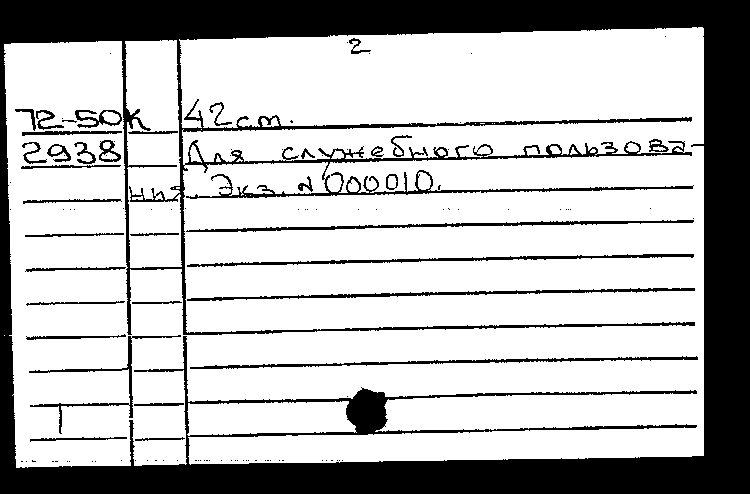 2
72-50К 42 ст.
2938 Для служебного пользова-
ния. Экз. N 000010.
1